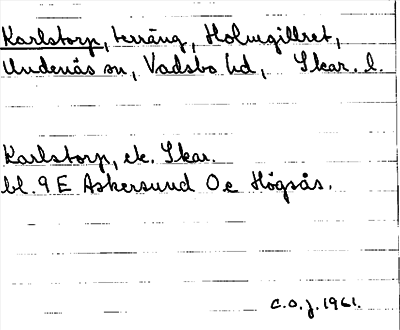 Karlstorp, terräng, Holmgillret,
Undenäs sn, Vadsbo hd, Skar. l.
Karlstorp, ek. Skar.
bl. 9 E Askersund Oe Högsås.
C.O.J. 1961.